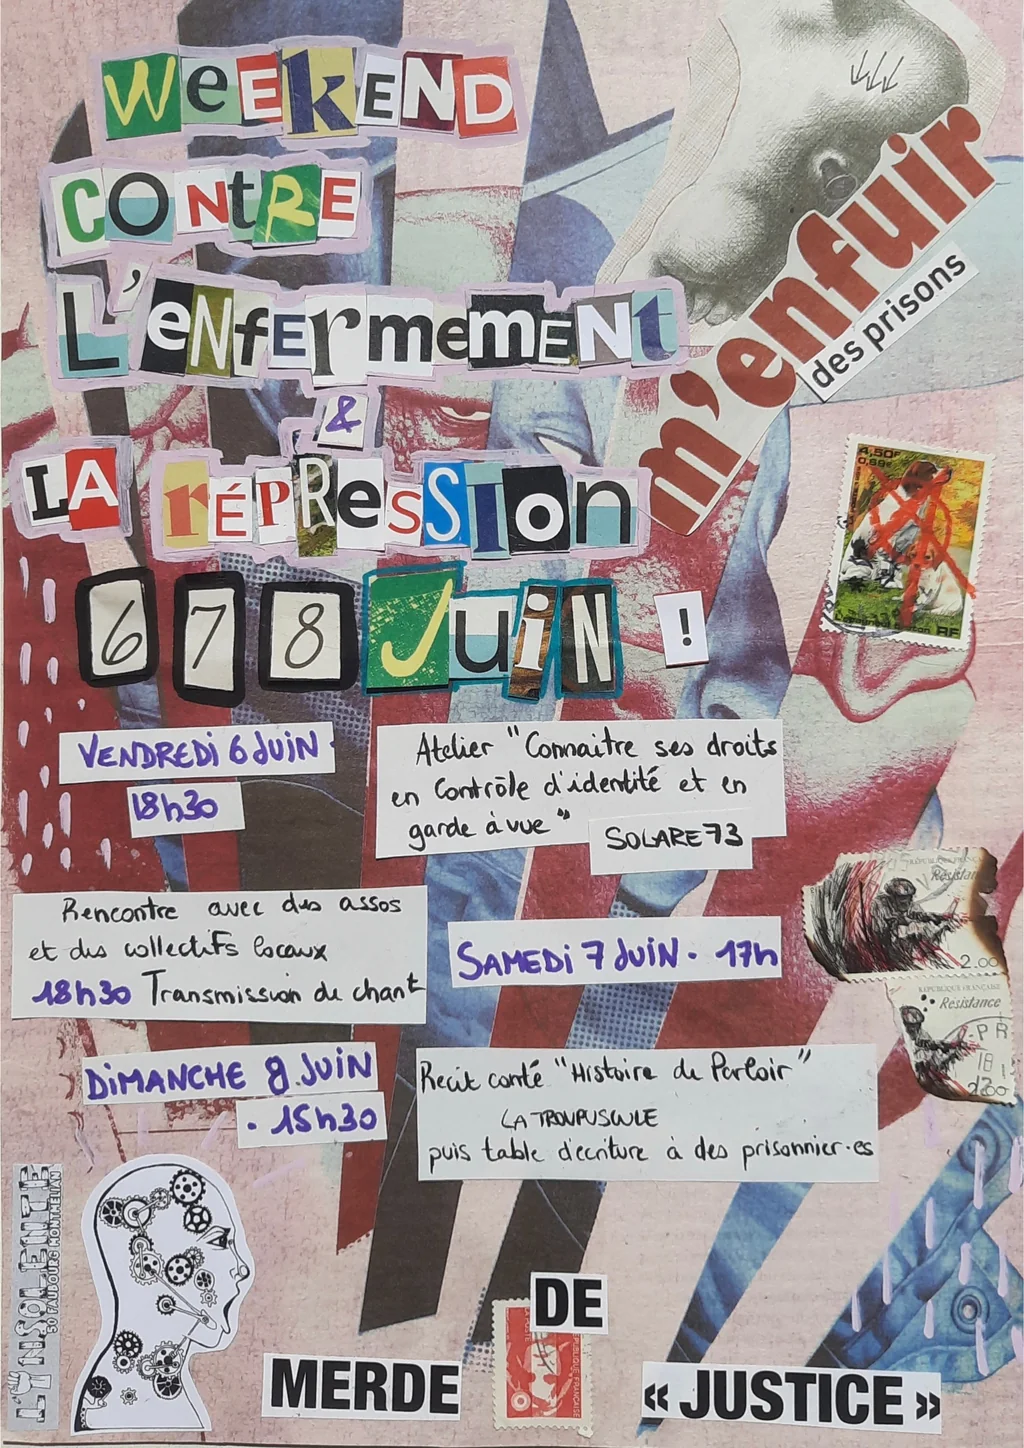 WEEKEND
CONtRE
L'ENfERmEMENt
&
LA RÉPRESSION
m'enfuir
des prisons
6 7 8 JuiN !
4,50F
0,69€
RF
VENDREDI 6 JUIN.
18h30
Atelier "Connaitre ses droits
en Contrôle d'identité et en
garde à vue"
SOLARE 73
Rencontre avec des assos
et des collectifs locaux
18h30 Transmission de chant
SAMEDI 7 JUIN. 17h
RÉPUBLIQUE FRANÇ
Résistan
2.00
RÉPUBLIQUE FRANÇAISE
Résistance
DIMANCHE 8 JUIN
. 15h30
Recit conté "Histoire de Parloir"
LA TROUPUSCULE
puis table d'écriture à des prisonnier·es
L'INSOLENTE
50 FAUBOURG MONTMELIAN
MERDE
DE
« JUSTICE »